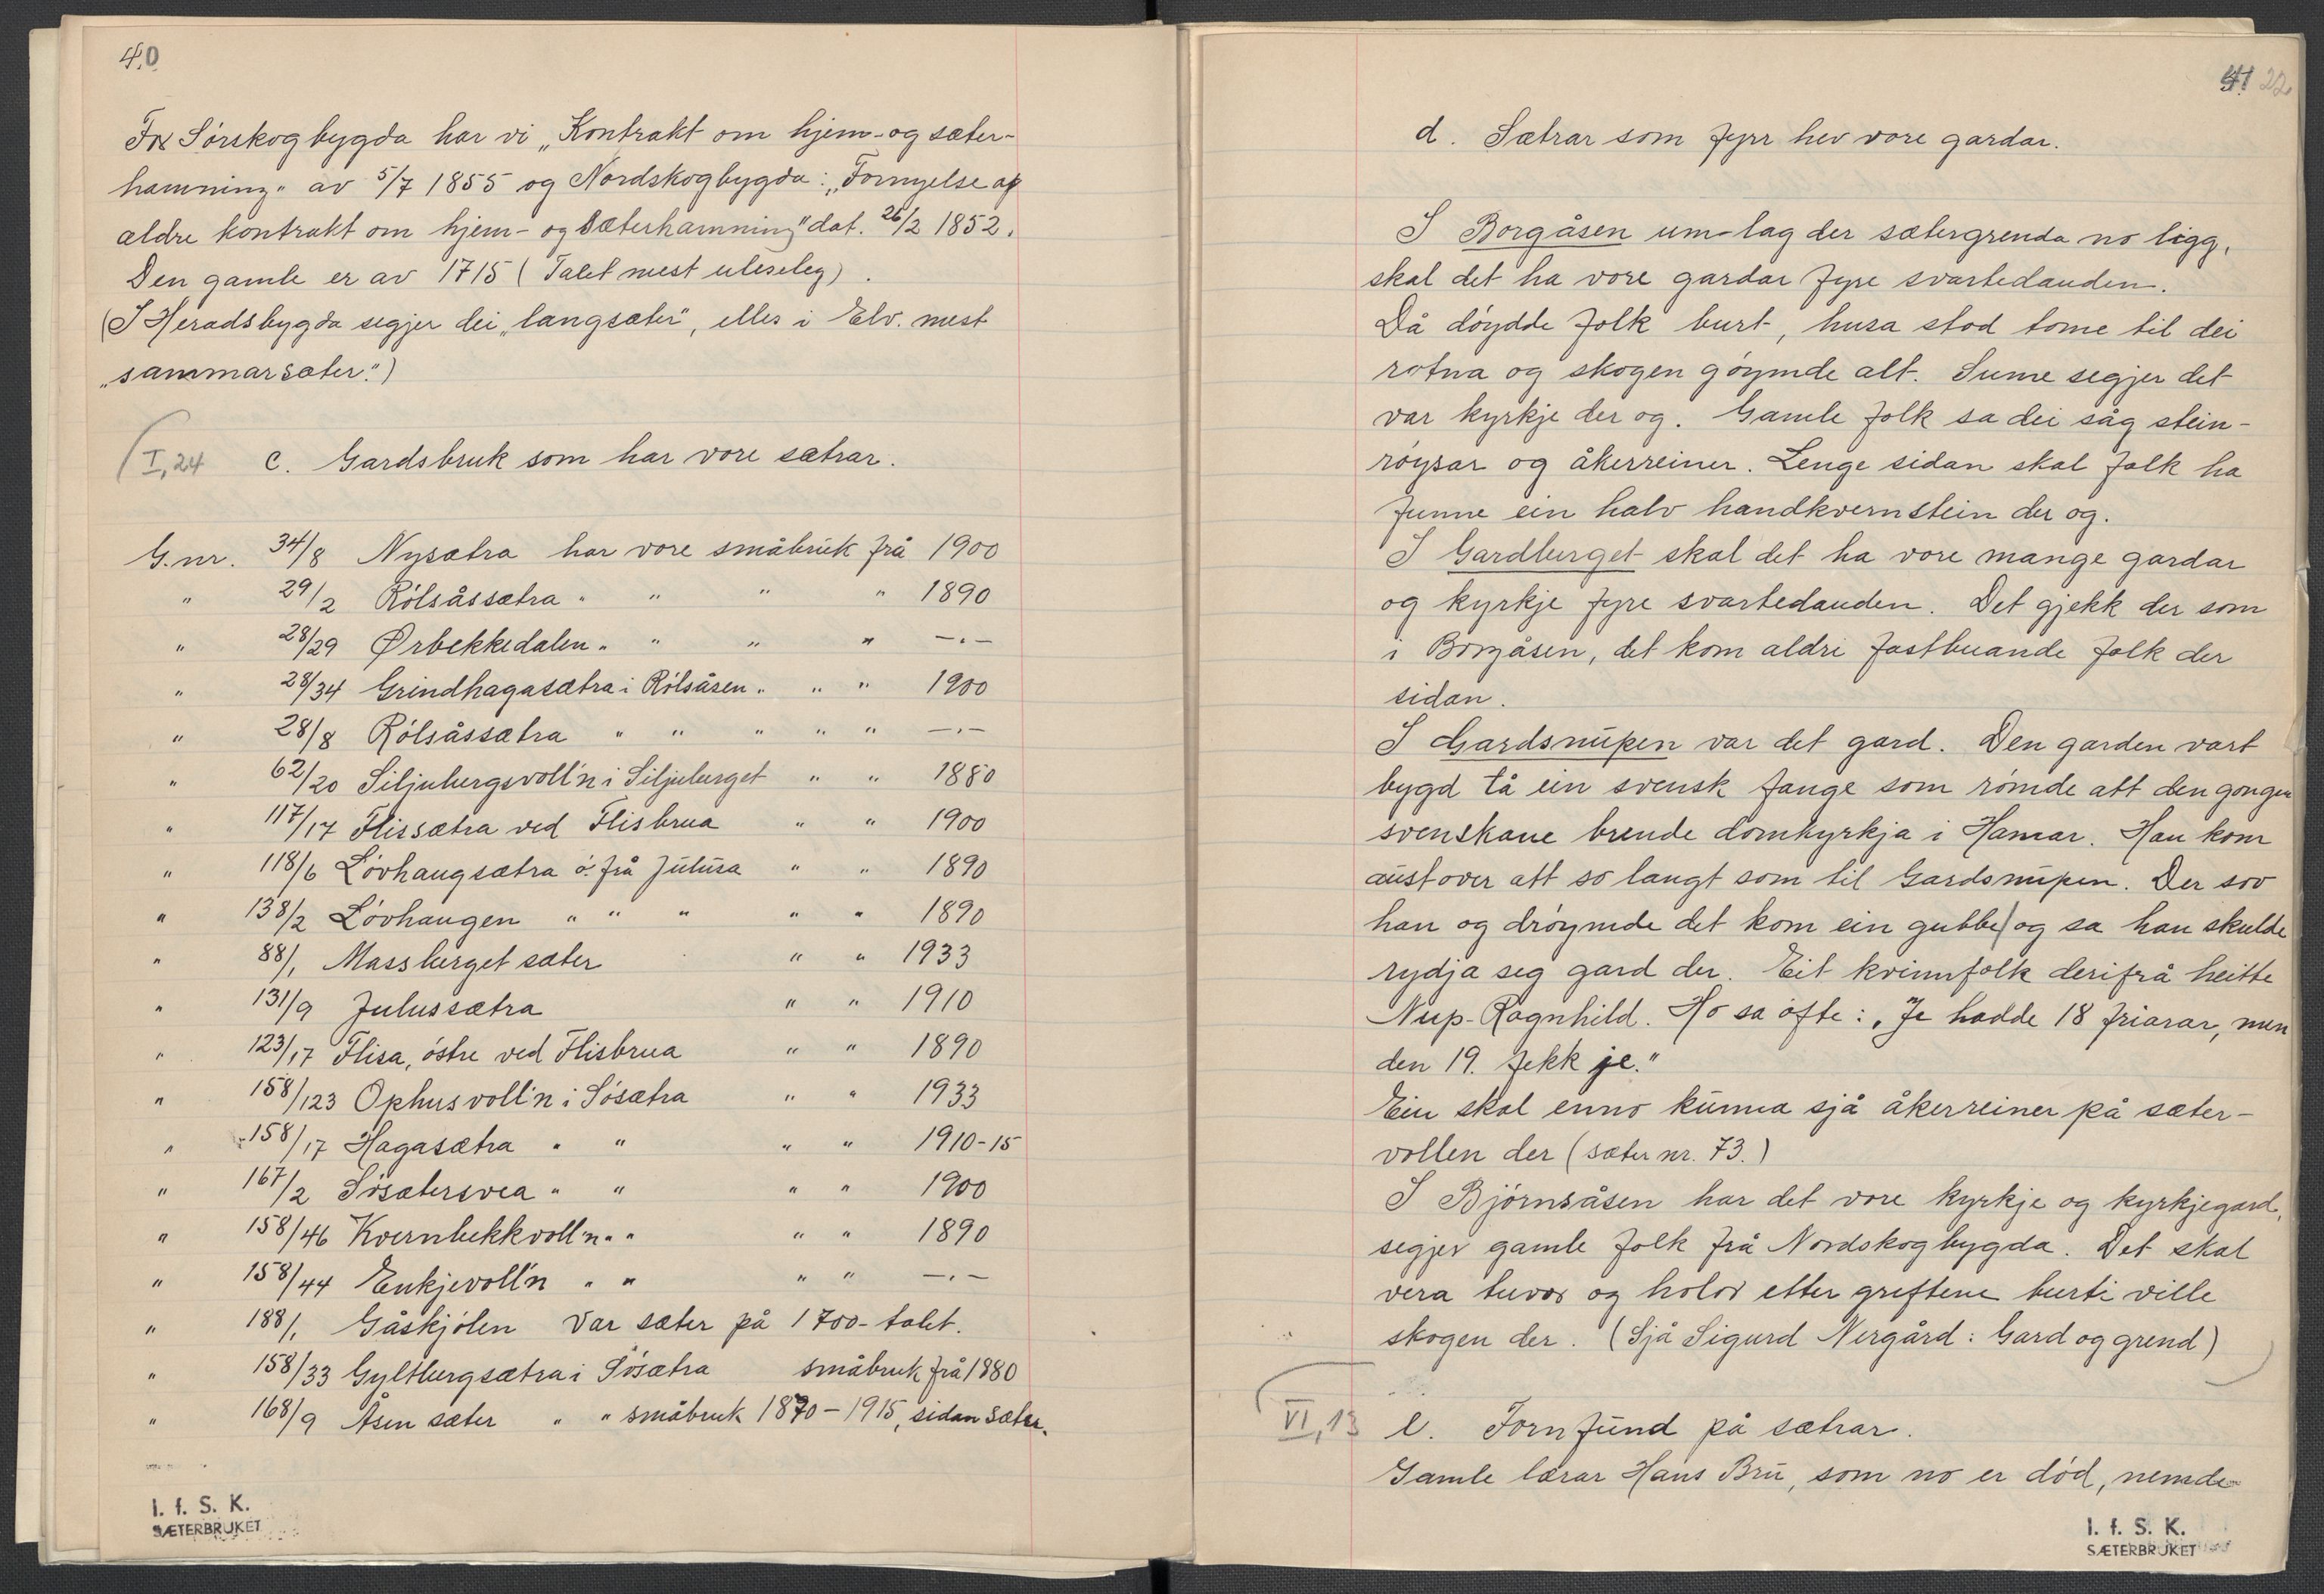 40
For Sørskogbygda har vi „Kontrakt om hjem- og sæter-
hamning" av 5/7 1855 og Nordskogbygda: „Fornyelse af
ældre kontrakt om hjem- og Sæterhamning" dat. 26/2 1852.
Den gamle er av 1715 (Talet mest uleseleg).
(I Heradsbygda segjer dei „langsæter", elles i Elv. mest
„sammarsæter.")
I, 24 c. Gardsbruk som har vore sætrar.
G.nr. 34/8 Nysætra har vore småbruk frå 1900
" 29/2 Rólsåssætra " " " " 1890
" 28/29 Ørbekkedalen " " " " —.—
" 28/34 Grindhagasætra i Rólsåsen " " " 1900
" 28/8 Rólsåssætra " " " " " —.—
" 62/20 Siljubergsvoll'n i Siljuberget " " 1880
" 117/17 Flissætra ved Flisbrua " " 1900
" 118/6 Lóvhaugsætra ó. frå Julusa " " 1890
" 138/2 Lóvhaugen " " " " " 1890
" 88/1 Massberget sæter " " 1933
" 131/9 Julussætra " " 1910
" 123/17 Flisa, óstre ved Flisbrua " " 1890
" 158/123 Ophusvoll'n i Sósætra " " 1933
" 158/17 Hagasætra " " " " 1910-15
" 167/2 Sósætersvea " " " " 1900
" 158/46 Kvernbekkvoll'n " " " " 1890
" 158/44 Enkjevoll'n " " " " —.—
" 188/1 Gåskjólen var sæter på 1700-talet.
" 158/33 Gyltbergsætra i Sósætra småbruk frå 1880
" 168/9 Åsen sæter " " småbruk 1870-1915, sidan sæter.
I. f. S. K.
SÆTERBRUKET
41 22
d. Sætrar som fyrr hev vore gardar.
I Borgåsen um-lag der sætergrenda no ligg,
skal det ha vore gardar fyre svartedauden.
Då dóydde folk burt, husa stod tome til dei
rotna og skogen góymde alt. Sume segjer det
var kyrkje der og. Gamle folk sa dei såg stein-
róysar og åkerreiner. Lenge sidan skal folk ha
funne ein halv handkvernstein der og.
I Gardberget skal det ha vore mange gardar
og kyrkje fyre svartedauden. Det gjekk der som
i Borgåsen, det kom aldri fastbuande folk der
sidan.
I Gardsnupen var det gard. Den garden vart
bygd tå ein svensk fange som rómde att den gongen
svenskane brende domkyrkja i Hamar. Han kom
austover att so langt som til Gardsnupen. Der sov
han og dróymde det kom ein gubbe og sa han skulde
rydja seg gard der. Eit kvinnfolk derifrå heitte
Nup-Ragnhild. Ho sa ofte: „Je hadde 18 friarar, men
den 19. fekk je."
Ein skal enno kunna sjå åkerreiner på sæter-
vollen der (sæter nr. 73.)
I Bjørnsåsen har det vore kyrkje og kyrkjegard,
segjer gamle folk frå Nordskogbygda. Det skal
vera tuvor og holor etter greftene burti ville
skogen der. (Sjå Sigurd Nergård: Gard og grend)
VI, 13 e. Fornfund på sætrar.
Gamle lærar Hans Bru, som no er død, nemde
I. f. S. K.
SÆTERBRUKET